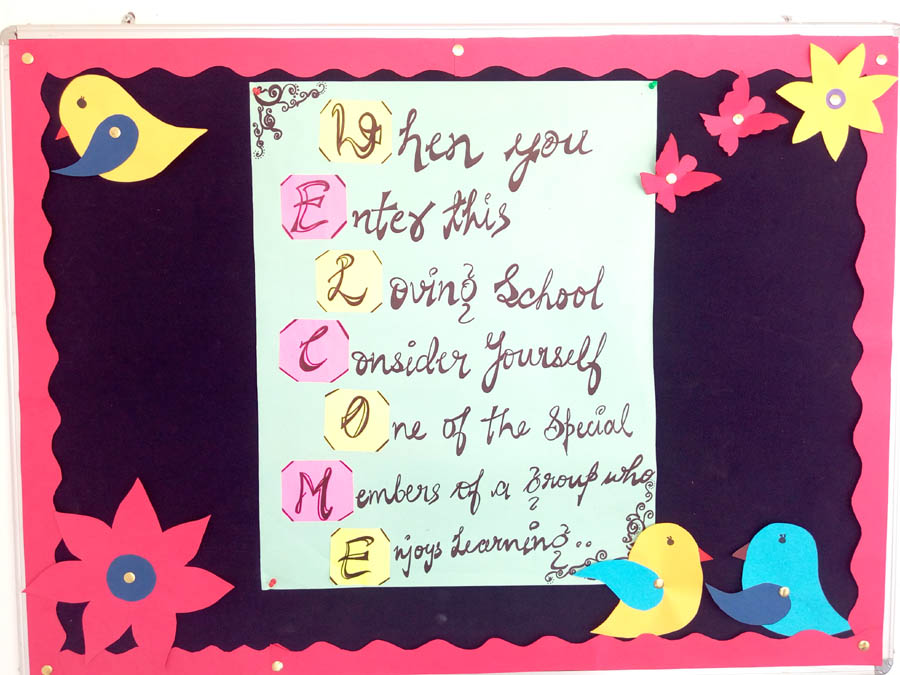 When you
Enter this
Loving School
Consider Yourself
One of the Special
Members of a group who
Enjoys Learning..